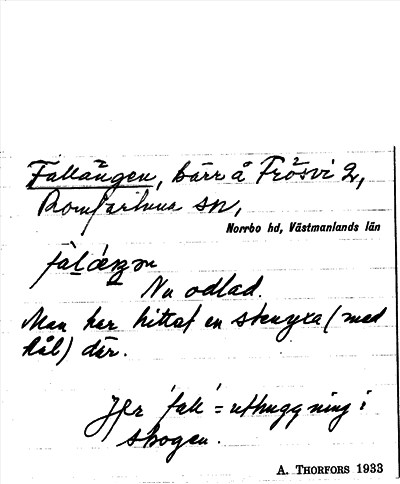 Fallängen, kärr å Frösvi 2,
Romfartuna sn,
Norrbo hd, Västmanlands län
Nu odlad.
Man har hittat en stenyxa (med
hål) där.
Jfr 'fall' = uthuggning i
skogen.
A. THORFORS 1933